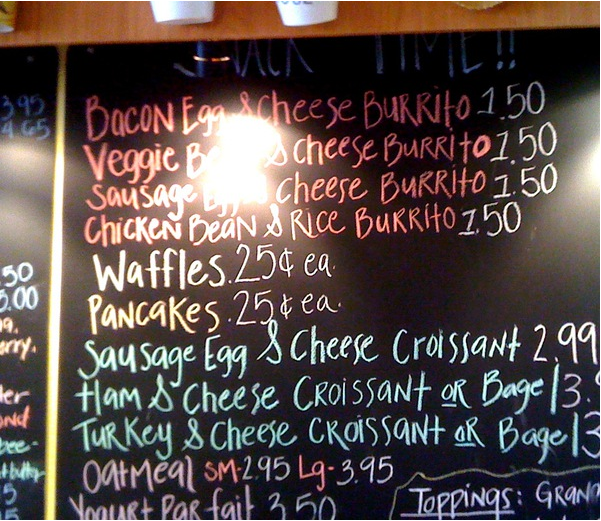 SNACK TIME!!
Bacon Egg & Cheese Burrito 1.50
Veggie & Cheese Burrito 1.50
Sausage & Cheese Burrito 1.50
Chicken Bean & Rice Burrito 1.50
Waffles. 25¢ ea.
Pancakes. 25¢ ea.
Sausage Egg & Cheese Croissant 2.99
Ham & Cheese Croissant or Bagel 3.
Turkey & Cheese Croissant or Bagel 3
Oatmeal sm-2.95 Lg-3.95
Yogurt Parfait 3.50
Toppings:
3.95
4.65
.50
5.00
erry.